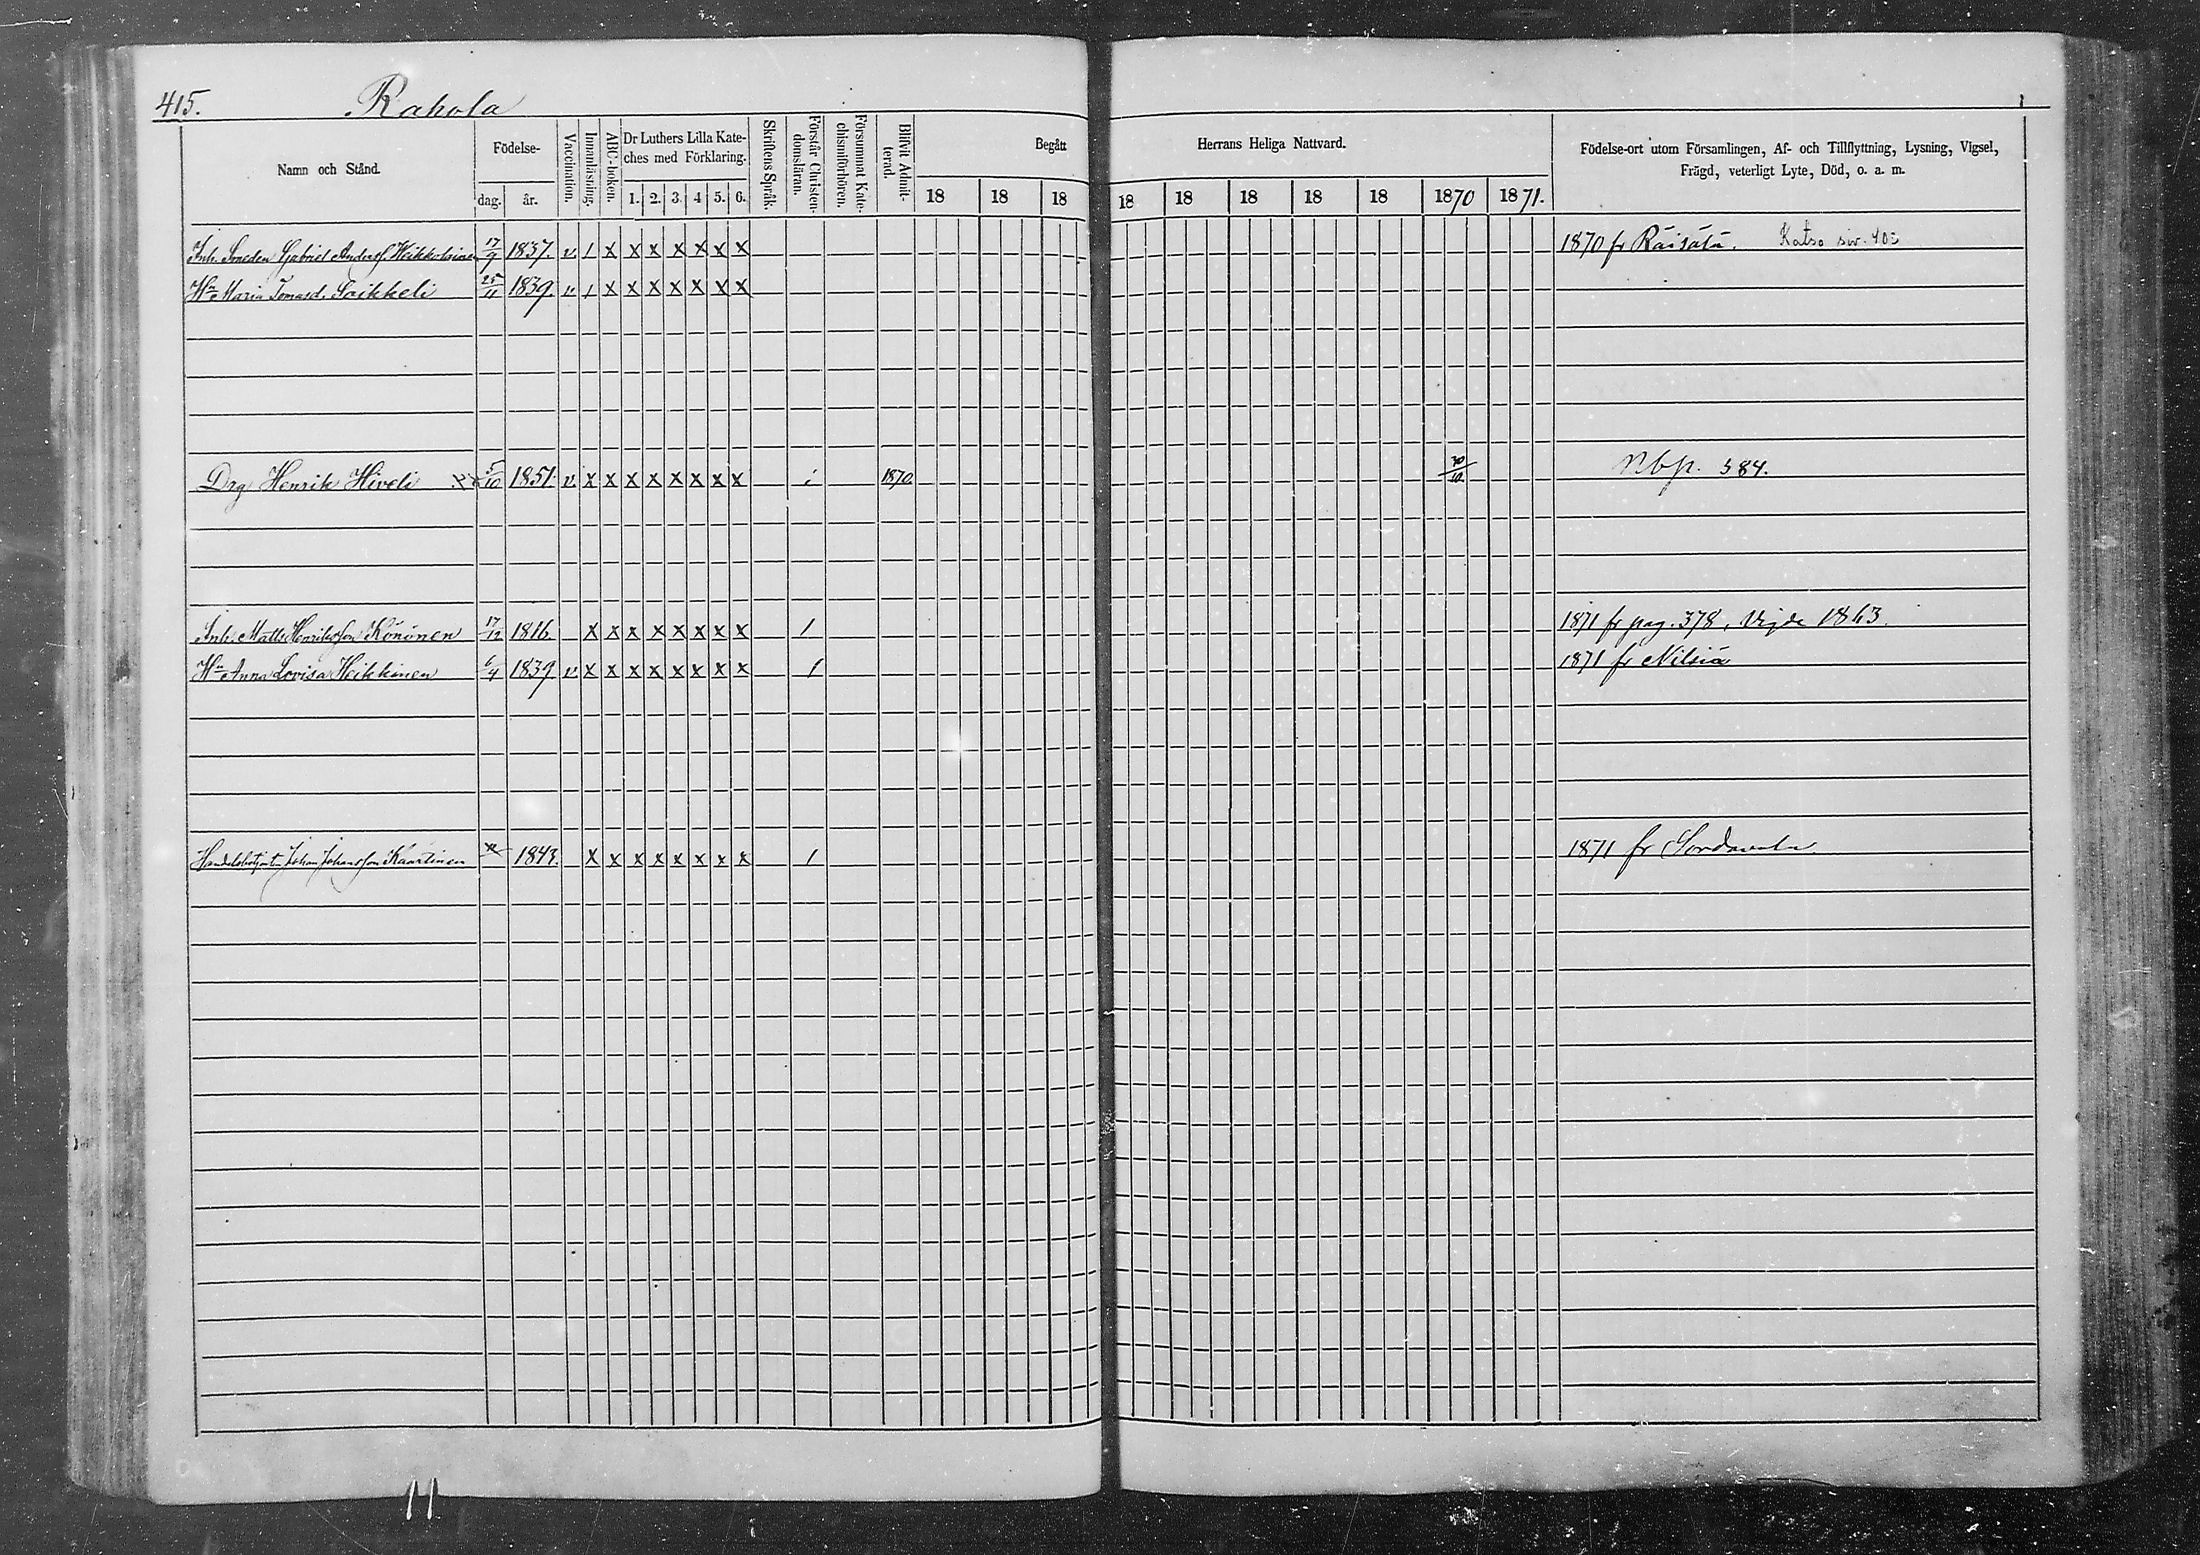 415. Rahola
Namn och Stånd. Födelse- dag. år. Vaccination. Innanläsning. ABC-boken. Dr Luthers Lilla Kateches med Förklaring. 1. 2. 3. 4 5. 6. Skriftens Språk. Förstår Christendomsläran. Försummat Katechismiförhören. Blifvit Admitterad. Begått Herrans Heliga Nattvard. 18 18 18 18 18 18 18 18 1870 1871. Födelse-ort utom Församlingen, Af- och Tillflyttning, Lysning, Vigsel, Frägd, veterligt Lyte, Död, o. a. m.
Inh. Smeden Gabriel Andersf. Heikkolainen 17/9 1837. v / x x x x x x x 1870 fr Räisälä. Katso siv. 403
Hu Maria Tomasd. Saikkeli 25/11 1839. v / x x x x x x x
Drg Henrik Hiveli 5/10 1851. v. x x x x x x x x i 1870. 30/10 Nbp. 384.
Inh. Matts Henriksson Könönen 17/12 1816 x x x x x x x x 1 1871 fr pag. 378, Vigde 1863.
Hu Anna Lovisa Heikkinen 6/4 1839 v. x x x x x x x x 1 1871 fr Nilsiä
Johan Johansson Kaartinen 1843. x x x x x x x x 1 1871 fr Sordavala